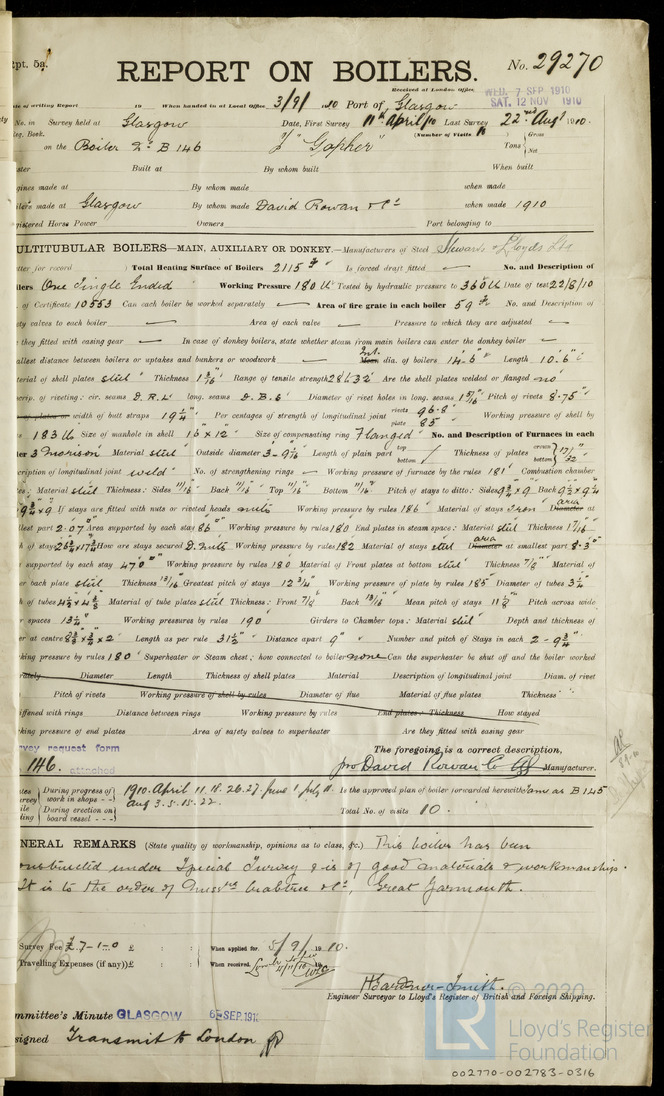 Rpt. 5a.
REPORT ON BOILERS.
No. 29270
Received at London Office
WED. 7 SEP 1910
SAT. 12 NOV 1910
Date of writing Report 19 When handed in at Local Office 3/9/1910 Port of Glasgow
No. in Survey held at Glasgow Date, First Survey 11th April/10 Last Survey 22nd Aug 1910.
Reg. Book. (Number of Visits 10)
on the Boiler No B 146 "Gopher" Tons Gross Net
Built at By whom built When built
Engines made at By whom made when made
Boilers made at Glasgow By whom made David Rowan & Co when made 1910
Registered Horse Power Owners Port belonging to
MULTITUBULAR BOILERS—MAIN, AUXILIARY OR DONKEY.—Manufacturers of Steel Stewarts & Lloyds Ltd
Letter for record Total Heating Surface of Boilers 2115 Is forced draft fitted No. and Description of
Boilers One Single Ended Working Pressure 180 lb Tested by hydraulic pressure to 360 lb Date of test 22/8/10
No. of Certificate 10553 Can each boiler be worked separately Area of fire grate in each boiler 59 No. and Description of
safety valves to each boiler Area of each valve Pressure to which they are adjusted
Are they fitted with easing gear In case of donkey boilers, state whether steam from main boilers can enter the donkey boiler
Smallest distance between boilers or uptakes and bunkers or woodwork Int. Mean dia. of boilers 14-6" Length 10.6"
Material of shell plates steel Thickness 1 3/16" Range of tensile strength 28 & 32 Are the shell plates welded or flanged no
Descrip. of riveting: cir. seams D.R.L long. seams D.B.S Diameter of rivet holes in long. seams 1 5/16" Pitch of rivets 8.75"
Lap of plates or width of butt straps 19 1/4" Per centages of strength of longitudinal joint rivets 96.8 plate 85 Working pressure of shell by
rules 183 lb Size of manhole in shell 16" x 12" Size of compensating ring Flanged No. and Description of Furnaces in each
boiler 3 Morison Material steel Outside diameter Length of plain part top bottom Thickness of plates crown bottom 17/32"
Description of longitudinal joint weld No. of strengthening rings Working pressure of furnace by the rules 181 Combustion chamber
plates: Material steel Thickness: Sides 11/16" Back 11/16" Top 11/16" Bottom 11/16" Pitch of stays to ditto: Sides 9 3/4 x 9 Back 9 1/2 x 9 1/4
Top 9 3/4 x 9 If stays are fitted with nuts or riveted heads nuts Working pressure by rules 186 Material of stays Iron Diameter area at
smallest part 2.07 Area supported by each stay 86 Working pressure by rules 180 End plates in steam space: Material steel Thickness 1 7/16"
Pitch of stays How are stays secured D. nuts Working pressure by rules 182 Material of stays steel Diameter area at smallest part 8.3
Area supported by each stay 470 Working pressure by rules 180 Material of Front plates at bottom steel Thickness 7/8" Material of
Lower back plate steel Thickness 13/16" Greatest pitch of stays 12 3/4" Working pressure of plate by rules 185 Diameter of tubes 3 1/4"
Pitch of tubes Material of tube plates steel Thickness: Front 7/8" Back 13/16" Mean pitch of stays 11 1/8 Pitch across wide
water spaces 13 1/2" Working pressures by rules 190 Girders to Chamber tops: Material steel Depth and thickness of
girder at centre Length as per rule 31 1/2" Distance apart 9" Number and pitch of Stays in each 2 - 9 3/4"
Working pressure by rules 180 Superheater or Steam chest; how connected to boiler none Can the superheater be shut off and the boiler worked
separately Diameter Length Thickness of shell plates Material Description of longitudinal joint Diam. of rivet
Pitch of rivets Working pressure of shell by rules Diameter of flue Material of flue plates Thickness
stiffened with rings Distance between rings Working pressure by rules End plates: Thickness How stayed
Working pressure of end plates Area of safety valves to superheater Are they fitted with easing gear
Survey request form
146. attached
The foregoing is a correct description,
pro David Rowan & Co Manufacturer.
Dates of Survey while building During progress of work in shops - - 1910. April 11.18.26.27. June 1 July 11. Is the approved plan of boiler forwarded herewith Same as B 145
Aug 3.5.15.22.
During erection on board vessel - - - Total No. of visits 10.
GENERAL REMARKS (State quality of workmanship, opinions as to class, &c.) This boiler has been
constructed under Special Survey & is of good materials & workmanship.
It is to the order of Messrs Crabtree & Co, Great Yarmouth.
Survey Fee £ 7-1-0 When applied for, 5/9/1910.
Travelling Expenses (if any) £ When received,
H Gardner-Smith.
Engineer Surveyor to Lloyd's Register of British and Foreign Shipping.
Committee's Minute GLASGOW 6-SEP. 1910
Assigned Transmit to London
© 2020
LR
Lloyd's Register
Foundation
002770-002783-0316